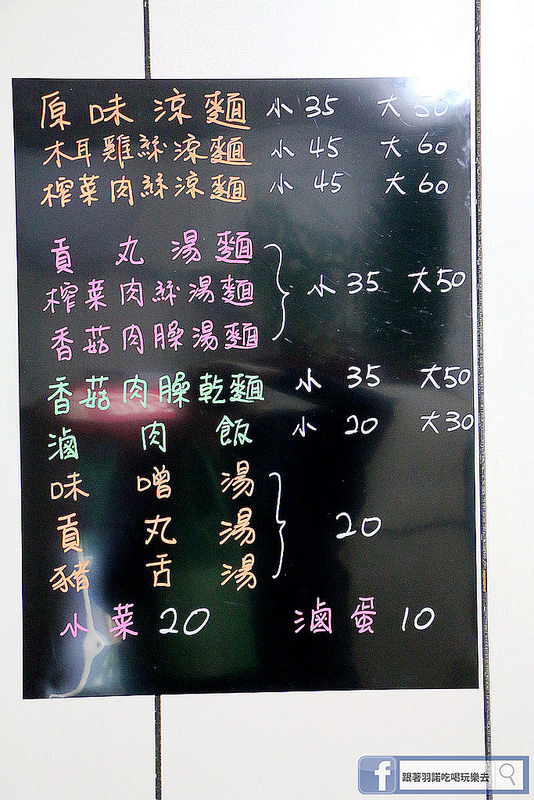 原味涼麵 小 35 大 50
木耳雞絲涼麵 小 45 大 60
榨菜肉絲涼麵 小 45 大 60
貢丸湯麵
榨菜肉絲湯麵 小 35 大 50
香菇肉臊湯麵
香菇肉臊乾麵 小 35 大 50
滷肉飯 小 20 大 30
味噌湯
貢丸湯 20
豬舌湯
小菜 20 滷蛋 10
f 跟著羽諾吃喝玩樂去